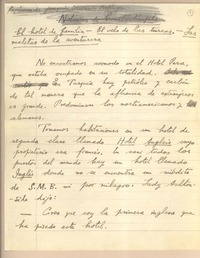 El hotel de familia — El velo de las turcas. — Las
maletas de la aventurera
No encontramos acomodo en el Hotel Pera,
que estaba ocupado en su totalidad.
En Turquía hay petróleo y cuotas
de tal manera que la afluencia de extranjeros
es grande. Predominan los norteamericanos y
alemanes.
Tomamos habitaciones en un hotel de
segunda clase llamado Hotel Inglés cuyo
propietario era francés. En casi todos los
puertos del mundo hay un hotel llamado
Inglés donde no se encuentra un súbdito
de S.M.B. ni por milagro. Lady
dijo:
— Creo que soy la primera inglesa que
ha pisado este hotel.